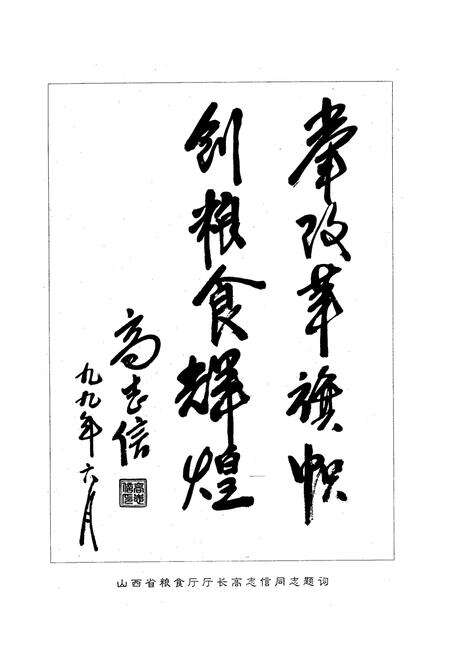 掌改革旗帜
创粮食辉煌
高志信
九九年六月
山西省粮食厅厅长高志信同志题词